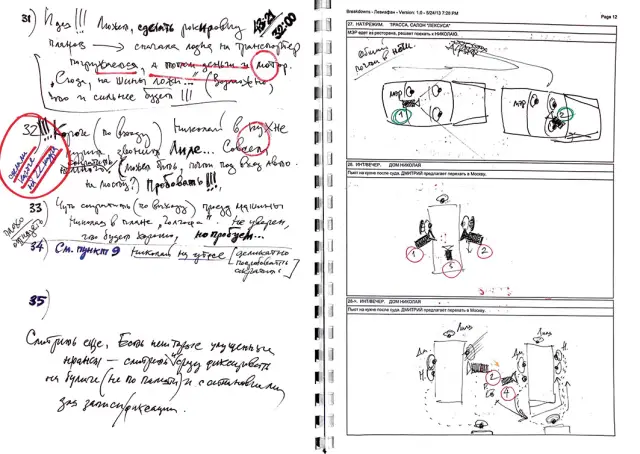 31) Идея!!! Может, сделать рокировку
43-21
32:00
планов → сначала лодка на транспортёр
погружается, а потом деньги и мотор.
"Сюда, на шины ложи..." (Возможно,
что и сильнее будет!!!
32!!! Короче (по входу) Николай в кухне
звонит Лиле... Совсем
(Может быть, почти под вход авто.
на мосту?) Пробовать!!!
33) Чуть сократить (по выходу) проезд машины
Николая в плане "Голгофа" не уверен,
что будет хорошо, но пробуем...
34) См. пункт 9 Николай на утёсе [деликатно
попробовать
сократить]
35)
Смотреть ещё, Есть некоторые упущенные
нюансы — смотреть и сразу фиксировать
на бумаге (не по памяти) и с остановками
для записи/фиксации.
Breakdowns - Левиафан - Version: 1,0 - 5/24/13 7:28 PM
Page 12
27. НАТ/РЕЖИМ. ТРАССА, САЛОН "ЛЕКСУСА"
МЭР едет из ресторана, решает поехать к НИКОЛАЮ.
общий
почти в ночи
мэр
1
мэр
2
28. ИНТ/ВЕЧЕР. ДОМ НИКОЛАЯ
Пьют на кухне после суда. ДМИТРИЙ предлагает переехать в Москву.
1
3
2
28-х. ИНТ/ВЕЧЕР. ДОМ НИКОЛАЯ
Пьют на кухне после суда. ДМИТРИЙ предлагает переехать в Москву.
Лиля
Лиля
Дм.
Дм.
Н.
Н.
2
4